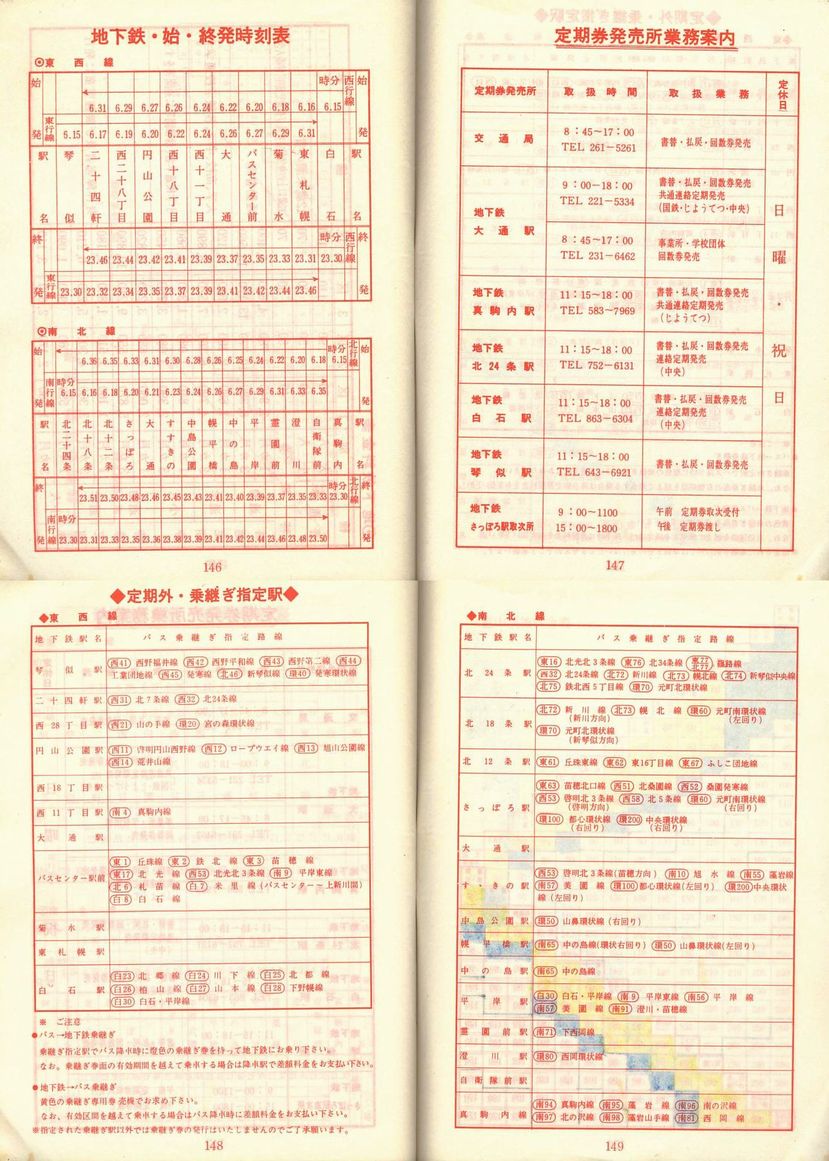 地下鉄・始・終発時刻表
◎東西線
始 時分 西行線 始
6.31 6.29 6.27 6.26 6.24 6.22 6.20 6.18 6.16 6.15
発 東行線 6.15 6.17 6.19 6.20 6.22 6.24 6.26 6.27 6.29 6.31 発
駅名 琴似 二十四軒 西二十八丁目 円山公園 西十八丁目 西十一丁目 大通 バスセンター前 菊水 東札幌 白石 駅名
終 時分 西行線 終
23.46 23.44 23.42 23.41 23.39 23.37 23.35 23.33 23.31 23.30
発 東行線 23.30 23.32 23.34 23.35 23.37 23.39 23.41 23.42 23.44 23.46 発
◎南北線
始 時分 北行線 始
6.36 6.35 6.33 6.31 6.30 6.28 6.26 6.25 6.24 6.22 6.20 6.18 6.15
発 南行線 時分 6.15 6.16 6.18 6.20 6.21 6.23 6.24 6.26 6.27 6.29 6.31 6.33 6.35 発
駅名 北二十四条 北十八条 北十二条 さっぽろ 大通 すすきの 中島公園 幌平橋 中の島 平岸 霊園前 澄川 自衛隊前 真駒内 駅名
終 時分 北行線 終
23.51 23.50 23.48 23.46 23.45 23.43 23.41 23.40 23.39 23.37 23.35 23.33 23.30
発 南行線 時分 23.30 23.31 23.33 23.35 23.36 23.38 23.39 23.41 23.42 23.44 23.46 23.48 23.50 発
146
定期券発売所業務案内
定期券発売所 取扱時間 取扱業務 定休日
交通局 8：45〜17：00 書替・払戻・回数券発売
TEL 261-5261
地下鉄 大通駅 9：00−18：00 書替・払戻・回数券発売
TEL 221-5334 共通連絡定期発売
(国鉄・じょうてつ・中央)
8：45〜17：00 事業所・学校団体
TEL 231-6462 回数券発売
地下鉄 真駒内駅 11：15〜18：00 書替・払戻・回数券発売
TEL 583〜7969 共通連絡定期発売
(じょうてつ)
地下鉄 北24条駅 11：15〜18：00 書替・払戻・回数券発売
TEL 752-6131 連絡定期発売
(中央)
地下鉄 白石駅 11：15〜18：00 書替・払戻・回数券発売
TEL 863-6304 連絡定期発売
(中央)
地下鉄 琴似駅 11：15〜18：00 書替・払戻・回数券発売
TEL 643-6921
地下鉄 さっぽろ駅取次所 9：00〜1100 午前 定期券取次受付
15：00〜1800 午後 定期券渡し
日曜・祝日
147
◆定期外・乗継ぎ指定駅◆
◆東西線
地下鉄駅名 バス乗継ぎ指定路線
琴似駅 西41 西野福井線 西42 西野平和線 西43 西野第二線 西44
工業団地線 西45 発寒線 北46 新琴似線 環40 発寒環状線
二十四軒駅 西31 北7条線 西32 北24条線
西28丁目駅 西21 山の手線 環20 宮の森環状線
円山公園駅 西11 啓明円山西野線 西12 ロープウエイ線 西13 旭山公園線
西14 荒井山線
西18丁目駅
西11丁目駅 南4 真駒内線
大通駅
バスセンター駅前 東1 丘珠線 東2 鉄北線 東3 苗穂線
東17 北光線 西53 北光北3条線 南9 平岸東線
北6 札苗線 白7 米里線 (バスセンター〜上新川間)
白8 白石線
菊水駅
東札幌駅
白石駅 白23 北郷線 白24 川下線 白25 北都線
白26 柏山線 白27 山本線 白28 下野幌線
白30 白石・平岸線
※ ご注意
●バス→地下鉄乗継ぎ
乗継ぎ指定駅でバス降車時に橙色の乗継ぎ券を持って地下鉄にお乗り下さい。
なお、乗継ぎ券面の有効期間を越えて乗車する場合は降車駅で差額料金をお支払い下さい。
●地下鉄→バス乗継ぎ
黄色の乗継ぎ専用券売機でお求め下さい。
なお、有効区間を越えて乗車する場合はバス降車時に差額料金をお支払い下さい。
※指定された乗継ぎ駅以外では乗継ぎ券の発行はいたしませんのでご了承願います。
148
◆南北線
地下鉄駅名 バス乗継ぎ指定路線
北24条駅 東16 北光北3条線 東76 北34条線 東77 北77 篠路線
西32 北24条線 北72 新川線 北73 幌北線 北74 新琴似中央線
北75 鉄北西5丁目線 環70 元町北環状線
北18条駅 北72 新川線 北73 幌北線 環60 元町南環状線
(新川方向) (左回り)
環70 元町北環状線
(新琴似方向)
北12条駅 東61 丘珠東線 東62 東16丁目線 東67 ふしこ団地線
さっぽろ駅 東63 苗穂北口線 西51 北桑園線 西52 桑園発寒線
西53 啓明北3条線 西58 北5条線 環60 元町南環状線
(啓明方向) (右回り)
環100 都心環状線 環200 中央環状線
(右回り) (右回り)
大通駅
すすきの駅 西53 啓明北3条線(苗穂方向) 南10 旭水線 南55 藻岩線
南57 美園線 環100 都心環状線(左回り) 環200 中央環状
線 (左回り)
中島公園駅 環50 山鼻環状線 (右回り)
幌平橋駅 南65 中の島線(環状右回り) 環50 山鼻環状線(左回り)
中の島駅 南65 中の島線
平岸駅 白30 白石・平岸線 南9 平岸東線 南56 平岸線
南57 美園線 南91 澄川・苗穂線
霊園前駅 南71 下西岡線
澄川駅 環80 西岡環状線
自衛隊前駅
真駒内線 南94 真駒内線 南95 藻岩線 南96 南の沢線
南97 北の沢線 南98 藻岩山手線 南81 西岡線
149